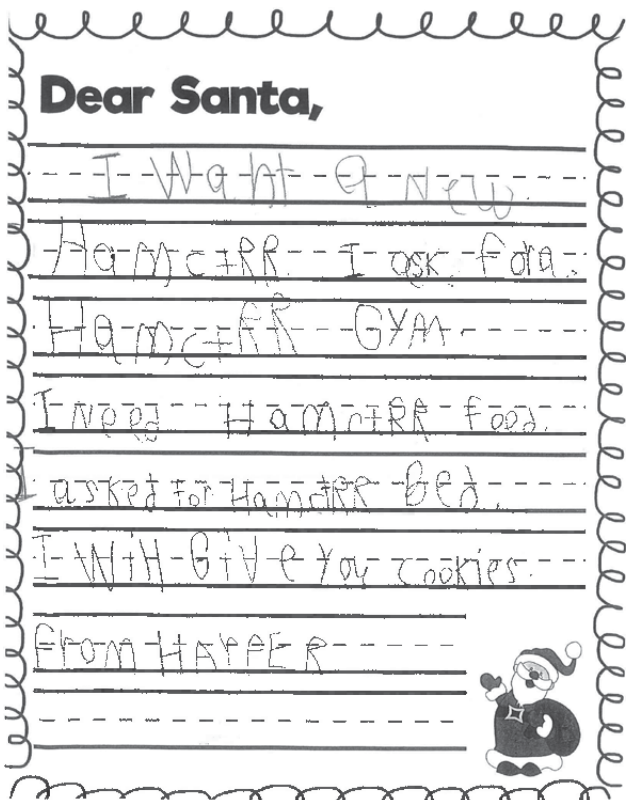 Dear Santa,
I Want a New
HamctRR I ask fora.
HamctRR GYM.
I Need HamctRR food.
I asked For HamctRR Bed.
I Will Give you cookies.
From HARPER